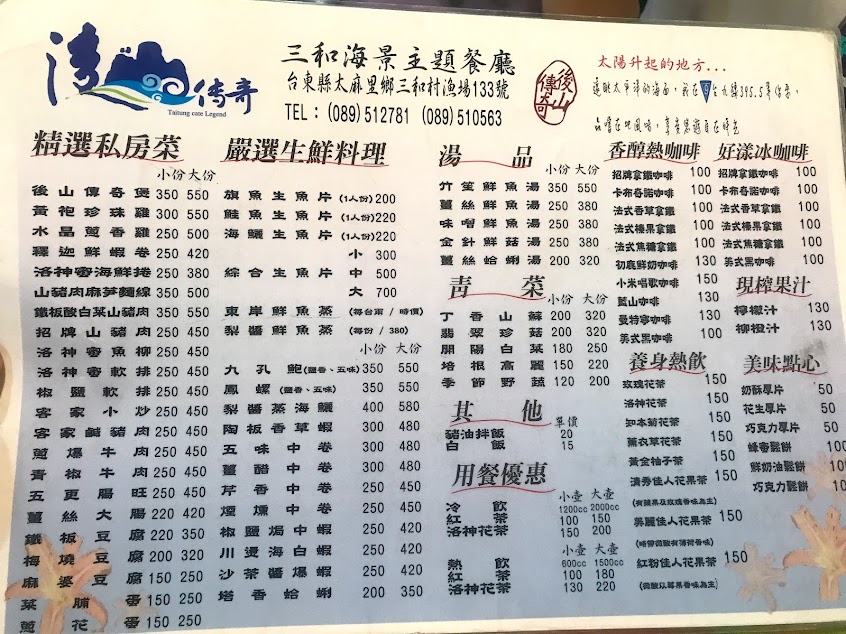 灣山傳奇
Taitung cate Legend
三和海景主題餐廳
台東縣太麻里鄉三和村漁場133號
TEL：(089)512781 (089)510563
後山傳奇
太陽升起的地方...
精選私房菜
小份 大份
後山傳奇煲 350 550
黃袍珍珠雞 300 550
水晶蔥香雞 300 550
釋迦鮮蝦卷 250 420
洛神蜜海鮮捲 250 380
山豬肉麻筍麵線 350 500
鐵板酸白菜山豬肉 350 550
招牌山豬肉 250 450
洛神蜜魚柳 250 450
洛神蜜軟排 250 450
椒鹽軟排 250 450
客家小炒 250 450
客家鹹豬肉 250 450
蔥爆牛肉 250 450
青椒牛肉 250 450
五更腸旺 250 450
薑絲大腸 220 420
鐵板豆腐 220 350
梅燒豆腐 200 320
麻婆豆腐 150 250
菜脯蛋 150 250
蔥花蛋 150 250
嚴選生鮮料理
旗魚生魚片 (1人份)200
鮭魚生魚片 (1人份)220
海鱺生魚片 (1人份)220
小 300
綜合生魚片 中 500
大 700
東岸鮮魚蒸 (每台兩 / 時價)
梨醬鮮魚蒸 (每份 / 380)
小份 大份
九孔鮑(鹽香、五味) 350 550
鳳螺(鹽香、五味) 350 550
梨醬蒸海鱺 400 580
陶板香草蝦 300 480
五味中卷 300 480
薑醋中卷 300 480
芹香中卷 250 450
煙燻中卷 250 420
椒鹽焗中蝦 250 420
川燙海白蝦 250 420
沙茶醬爆蝦 250 420
塔香蛤蜊 200 350
湯品
竹笙鮮魚湯 350 550
薑絲鮮魚湯 250 380
味噌鮮魚湯 250 380
金針鮮菇湯 250 380
薑絲蛤蜊湯 200 320
青菜
小份 大份
丁香山蘇 200 320
翡翠珍菇 200 320
開陽白菜 180 250
培根高麗 150 220
季節野蔬 120 200
其他
單價
豬油拌飯 20
白飯 15
用餐優惠
小壺 大壺
冷飲 1200cc 2000cc
紅茶 100 150
洛神花茶 150 200
小壺 大壺
熱飲 600cc 1500cc
紅茶 100 180
洛神花茶 130 220
香醇熱咖啡
招牌拿鐵咖啡 100
卡布奇諾咖啡 100
法式香草拿鐵 100
法式榛果拿鐵 100
法式焦糖拿鐵 100
初鹿鮮奶咖啡 100
小米唱歌咖啡 150
藍山咖啡 130
曼特寧咖啡 130
美式黑咖啡 100
養身熱飲
玫瑰花茶 150
洛神花茶 150
知本菊花茶 150
薰衣草花茶 150
黃金柚子茶 150
清秀佳人花果茶 150
(有蘋果及玫瑰香味為主)
美麗佳人花果茶 150
(略帶微酸有薄荷香味)
紅粉佳人花果茶 150
(微酸以莓果香味為主)
好漾冰咖啡
招牌拿鐵咖啡 100
卡布奇諾咖啡 100
法式香草拿鐵 100
法式榛果拿鐵 100
法式焦糖拿鐵 100
美式黑咖啡 100
現榨果汁
檸檬汁 130
柳橙汁 130
美味點心
奶酥厚片 50
花生厚片 50
巧克力厚片 50
蜂蜜鬆餅 100
鮮奶油鬆餅 100
巧克力鬆餅 100